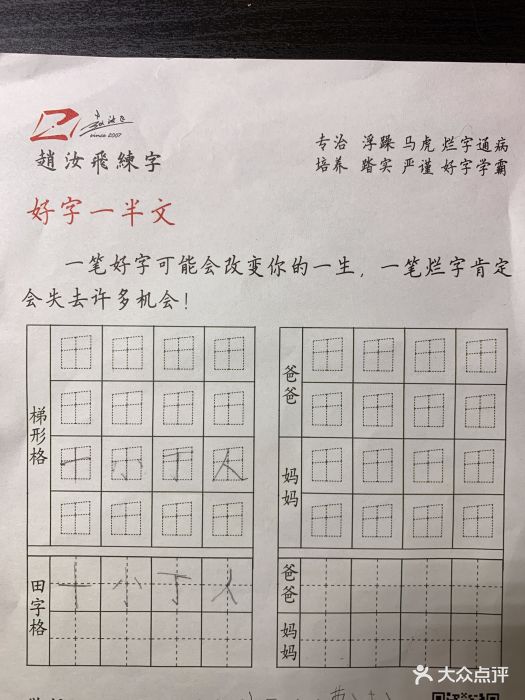 赵汝飞
since 2007
趙汝飛練字
专治 浮躁 马虎 烂字通病
培养 踏实 严谨 好字学霸
好字一半文
一笔好字可能会改变你的一生，一笔烂字肯定
会失去许多机会！
梯形格
十 小 丁 人
田字格
十 小 丁 人
爸爸
妈妈
爸爸
妈妈
大众点评